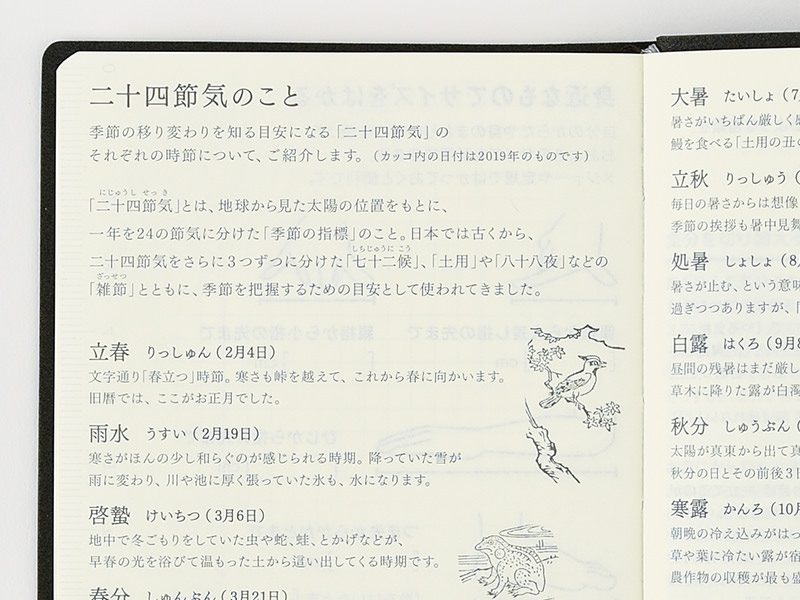 二十四節気のこと
季節の移り変わりを知る目安になる「二十四節気」の
それぞれの時節について、ご紹介します。（カッコ内の日付は2019年のものです）
にじゅうし せっ き
「二十四節気」とは、地球から見た太陽の位置をもとに、
一年を24の節気に分けた「季節の指標」のこと。日本では古くから、
しちじゅうに こう
二十四節気をさらに３つずつに分けた「七十二候」、「土用」や「八十八夜」などの
ざっせつ
「雑節」とともに、季節を把握するための目安として使われてきました。
立春 りっしゅん（2月4日）
文字通り「春立つ」時節。寒さも峠を越えて、これから春に向かいます。
旧暦では、ここがお正月でした。
雨水 うすい（2月19日）
寒さがほんの少し和らぐのが感じられる時期。降っていた雪が
雨に変わり、川や池に厚く張っていた氷も、水になります。
啓蟄 けいちつ（3月6日）
地中で冬ごもりをしていた虫や蛇、蛙、とかげなどが、
早春の光を浴びて温もった土から這い出してくる時期です。
春分 しゅんぶん（3月21日）
大暑 たいしょ（7
暑さがいちばん厳しく感
鰻を食べる「土用の丑の
立秋 りっしゅう（
毎日の暑さからは想像
季節の挨拶も暑中見舞
処暑 しょしょ（8
暑さが止む、という意味
過ぎつつありますが、「
白露 はくろ（9月8
昼間の残暑はまだ厳し
草木に降りた露が白濁
秋分 しゅうぶん（
太陽が真東から出て真
秋分の日とその前後3日
寒露 かんろ（10月
朝晩の冷え込みがはっ
草や葉に冷たい露が宿
農作物の収穫が最も盛